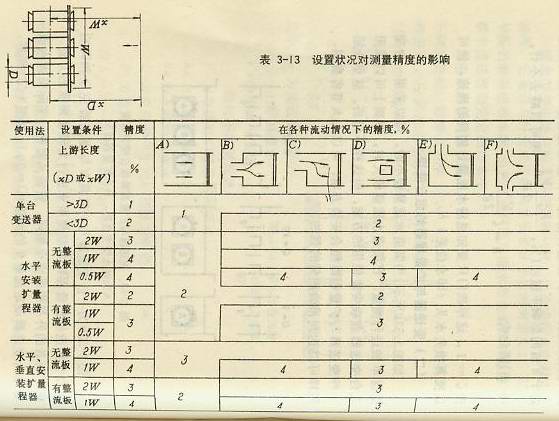 xW
W
D
xD
表 3-13 设置状况对测量精度的影响
使用法 设置条件 精度 在各种流动情况下的精度, %
上游长度 (xD 或 xW) % A) B) C) D) E) F)
单台变送器 >3D 1 1
<3D 2 2
水平安装扩量程器 无整流板 2W 3 2 3
1W 4 4
0.5W 4 4 3 4
有整流板 2W 2 2
1W 3 3
0.5W
水平、垂直安装扩量程器 无整流板 2W 3 3
1W 4 4 3 4
有整流板 2W 3 2 3
1W 4 4 3 4